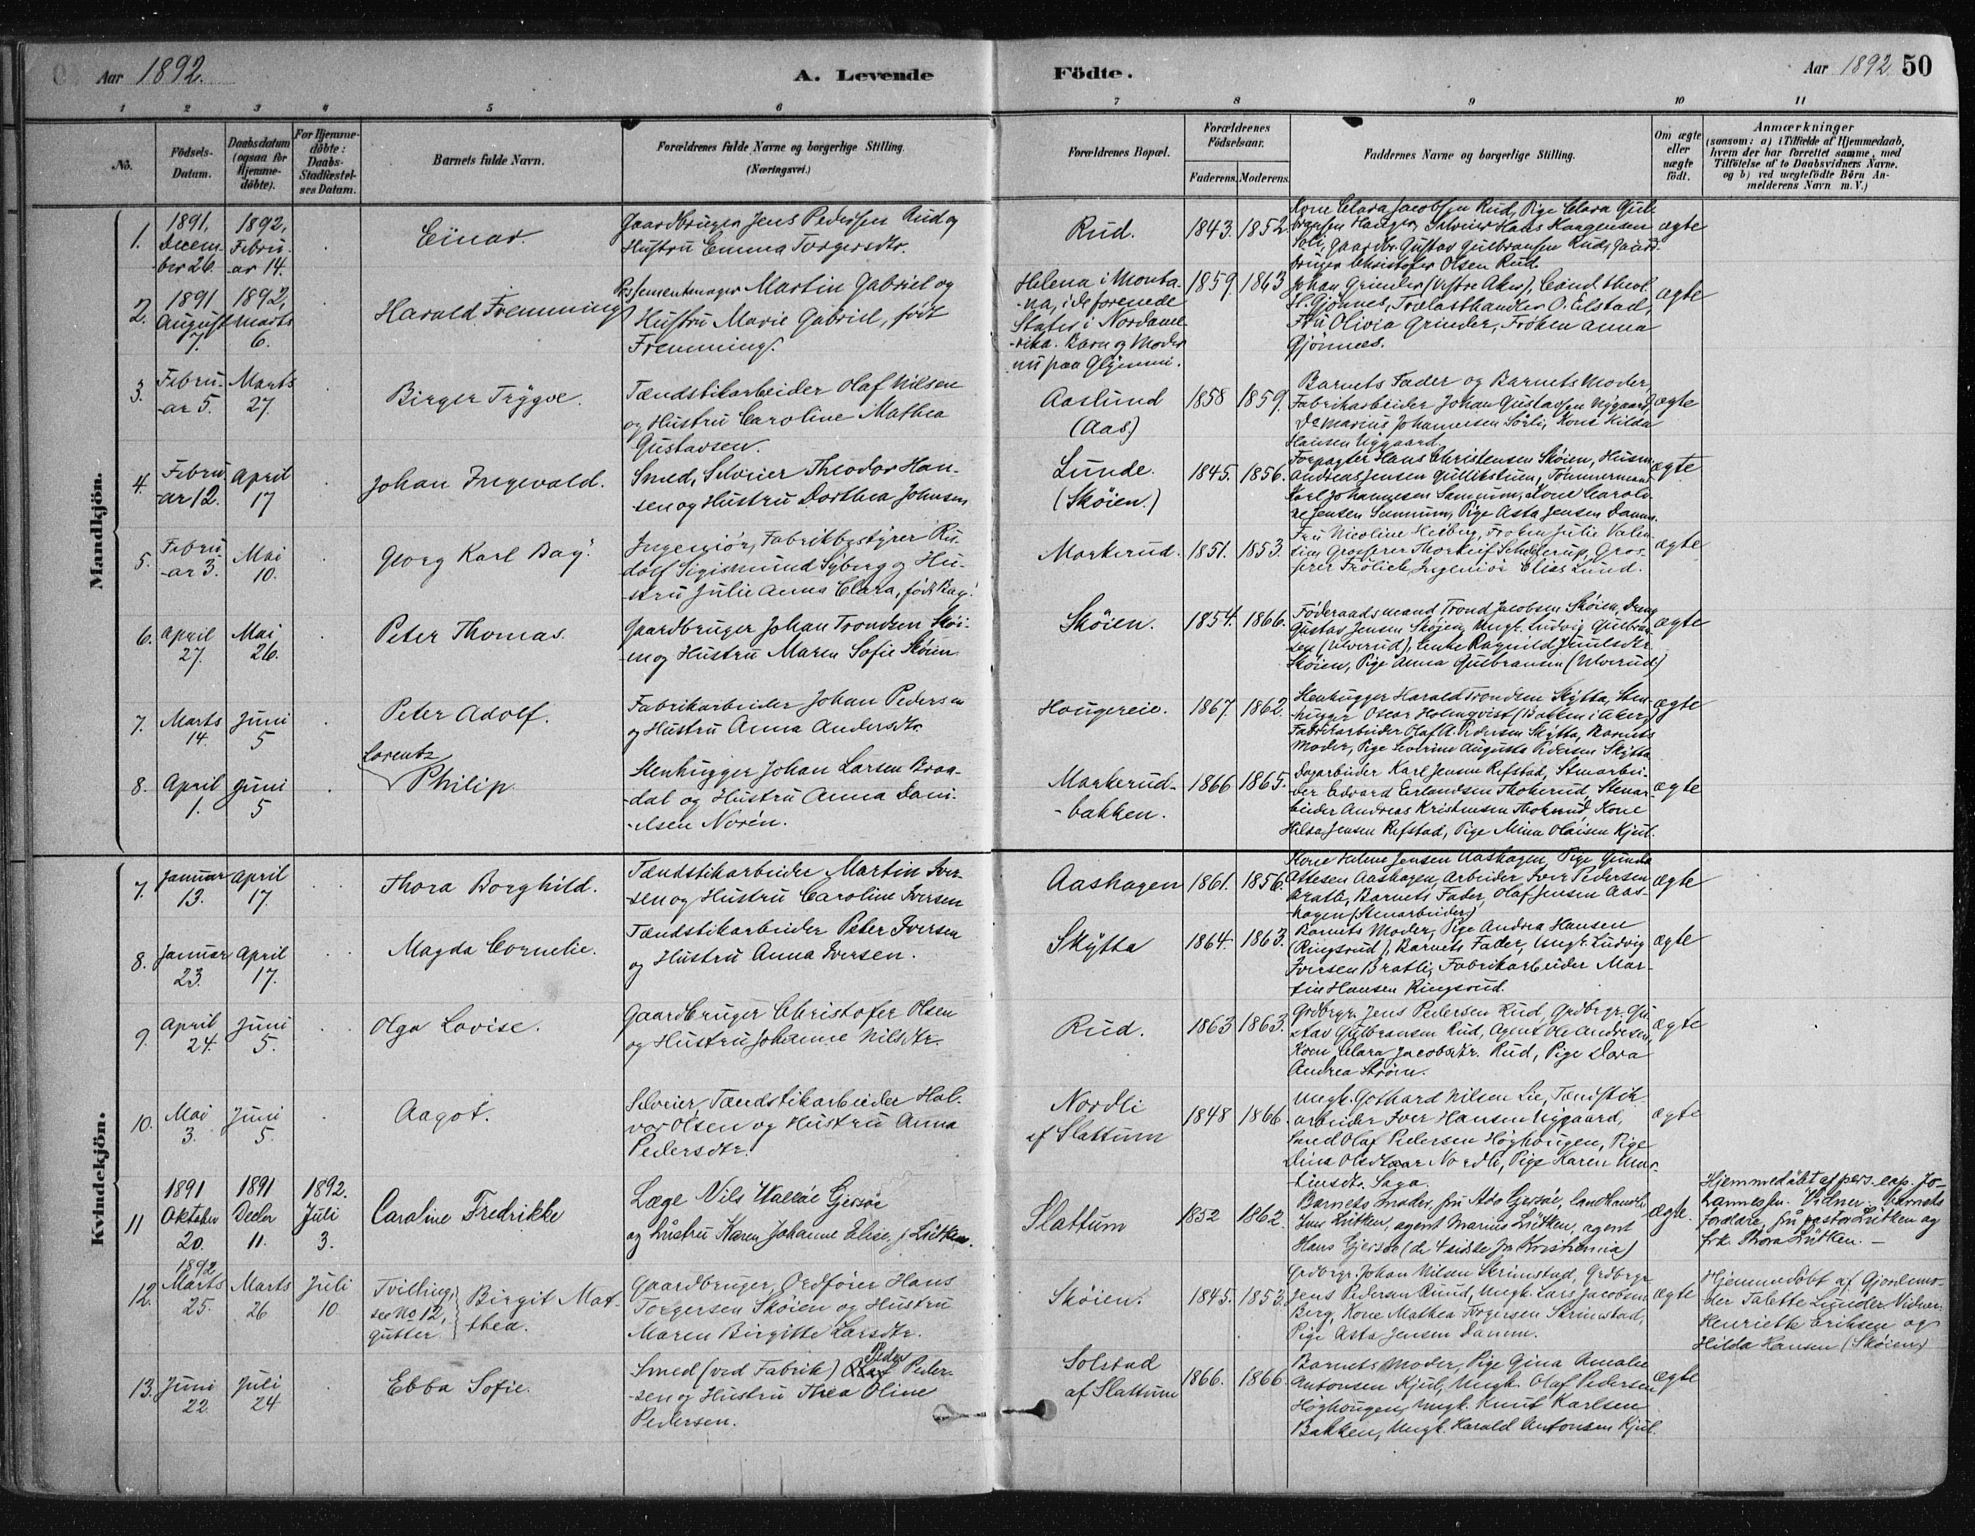 Aar 1892.
A. Levende
Födte.
Aar 1892 50
1 2 3 4 5 6 7 8 9 10 11
No.
Födsels-Datum.
Daabsdatum (ogsaa for Hjemmedöbte).
For Hjemmedöbte: Daabs-Stadfæstelses Datum.
Barnets fulde Navn.
Forældrenes fulde Navne og borgerlige Stilling. (Næringsvei.)
Forældrenes Bopæl.
Forældrenes Födselsaar.
Faderens. Moderens.
Faddernes Navne og borgerlige Stilling.
Om ægte eller uægte födt.
Anmærkninger
(saasom: a) i Tilfælde af Hjemmedaab, hvem der har forrettet samme, med Tilföielse af to Daabsvidners Navne. og b) ved uægtefödte Börn Anmelderens Navn m. V.)
Mandkjön.
1. 1891, Decem-ber 26. 1892, Febru-ar 14.
Einar.
Gaardbruger Jens Pedersen Rud og
Hustru Emma Torgersdtr.
Rud. 1843. 1852.
Kone Clara Jacobsen Rud, Pige Clara Gul-
bransen Haugen, Selveier Hans Haagensen
Soli, Gaardbr. Gustav Gulbransen Rud, Gaard-
bruger Christofer Olsen Rud.
ægte
2. 1891 August 7. 1892, Marts 6.
Harald Fremming
Martin Gabriel og
Hustru Marie Gabriel, født
Fremming.
Helena i Monta-
na, i de forenede
Stater i Nordame-
rika. Barn og Moder
nu paa Gjenni.
1859. 1863
Johan Grinder (Vestre Aker), Cand. theol.
H. Gjönnes, Trælasthandler O. Eilstad,
Fru Olivia Grinder, Fröken Anna
Gjönnes.
ægte
3. Febru-ar 5. Marts 27.
Birger Trygve.
Tændstikarbeider Olaf Nilsen
og Hustru Caroline Mathea
Gustavsen.
Aaslund
(Aas)
1858 1859.
Barnets Fader og Barnets Moder,
Fabrikarbeider Johan Gustavsen Nygaard,
Do Marius Johannesen Sörli, Kone Hilda
Hansen Nygaard.
ægte
4. Febru-ar 12. April 17
Johan Ingevald.
Smed, Selveier Theodor Han-
sen og Hustru Dorthea Johnsen
Lunde.
(Skøien.)
1845. 1856.
Forpagter Hans Christensen Skøien, Husm.
Andreas Jensen Gullikstuen, Tömmermand
Karl Johannesen Sannum, Kone Caroli-
ne Jensen Sannum, Pige Asta Jensen Damm.
ægte
5. Febru-ar 3. Mai 10.
Georg Karl Bay.
Ingeniör, Fabrikbestyrer Ru-
dolf Sigismund Syberg og Hu-
stru Julie Anna Clara, født Bay.
Markerud. 1851. 1853.
Fru Nicoline Heiberg, Fröken Julie Valen-
tin, Grosserer Thorleif Schjelderup, Gros-
serer Frölich, Ingeniör Elias Lund.
ægte
6. April 27. Mai 26.
Peter Thomas.
Gaardbruger Johan Trondsen Skøi-
en og Hustru Maren Sofie Skøien
Skøien. 1854. 1866.
Föderaadsmand Trond Jacobsen Skøien, Dreng
Gustav Jensen Skøien, Ungk. Ludvig Gulbran-
sen (Ulverud), Enke Ragnild Juulsdtr.
Skøien, Pige Anna Gulbransen (Ulverud)
ægte
7. Marts 14. Juni 5
Peter Adolf.
Fabrikarbeider Johan Pedersen
og Hustru Anna Andersdtr.
Haugereie. 1867. 1862.
Stenhugger Harald Trondsen Skytta, Sten-
hugger Oscar Holmqvist (Bakken i Aker)
Fabrikarbeider Olaf A. Pedersen Skytta, Barnets
Moder, Pige Severine Augusta Pedersen Skytta
ægte
8. April 1. Juni 5
Lorentz
Philip.
Stenhugger Johan Larsen Braa-
dal og Hustru Anna Dani-
elsen Norén.
Markerud-
bakken.
1866 1865.
Dagarbeider Karl Jensen Refstad, Stenarbei-
der Edvard Erlandsen Thokerud, Stenar-
beider Andreas Kristensen Thokerud, Kone
Hilda Jensen Refstad, Pige Mina Olaisen Kjul.
ægte
Kvindekjön.
7. Januar 13. April 17.
Thora Borghild.
Tændstikarbeider Martin Iver-
sen og Hustru Caroline Iversen
Aashagen 1861. 1856.
Kone Helene Jensen Aashagen, Pige Gunda
Attesen Aashagen, Arbeider Iver Pedersen
Bratli, Barnets Fader, Olaf Jensen Aas-
hagen (Stenarbeider)
ægte
8. Januar 23. April 17.
Magda Cornelie.
Tændstikarbeider Peter Iversen
og Hustru Anna Iversen.
Skytta 1864. 1863.
Barnets Moder, Pige Andrea Hansen
(Ringsrud), Barnets Fader, Ungk. Ludvig
Iversen Bratli, Fabrikarbeider Mar-
tin Hansen Ringsrud.
ægte
9. April 24. Juni 5.
Olga Lovise.
Gaardbruger Christofer Olsen
og Hustru Johanne Nilsdtr.
Rud. 1863 1863.
Grdbrgr. Jens Pedersen Rud, Grdbrgr. Gu-
stav Gulbransen Rud, Agent Ole Andresen,
Koen Clara Jacobsdtr. Rud, Pige Dora
Andrea Ström.
ægte
10. Mai 3. Juni 5.
Aagot.
Selveier, Tændstikarbeider Hal-
vor Olsen og Hustru Anna
Pedersdtr.
Nordli
af Slattum
1848 1866.
Ungk. Gothard Nilsen Lie, Tændstik-
arbeider Iver Hansen Nygaard,
Olaf Pedersen Høghougen, Pige
Dina Olsdtr Nordli, Pige Karen Mar-
tinsdtr. Saga.
ægte
11 1891 Oktober 20. 1891 Decbr 11. 1892. Juli 3.
Caroline Fredrikke
Læge Nils Wallöe Gjersøe
og hustru Karen Johanne Elise, f. Lütken.
Slattum 1852 1862.
Barnets moder, fru Ada Gjersöe,
Jens Lütken, agent Marius Lütken, agent
Hans Gjersøe (de 4 sidste fra Kristiania)
ægte.
Hjemmedöbt af pers. cap. Jo-
hannessen. Vidner: Barnets
forældre, fru pastor Lütken og
frk. Thora Lütken. —
12. 1892 Marts 25. Marts 26 Juli 10.
Tvilling, see No 12, gutter
Birgit Mat-
thea.
Gaardbruger, Ordfører Hans
Torgersen Skøien og Hustru
Maren Birgitte Larsdtr.
Skøien. 1845. 1853.
Grdbrgr. Johan Nilsen Skrimstad, Grdbrgr
Jens Pedersen Ruud, Ungk. Lars Jacobsen
Berg, Kone Mathea Torgersen Skrimstad,
Pige Asta Jensen Damm.
ægte
Hjemmedöbt af Gjordemo-
der Talette Lunder. Vidner
Henriette Eriksen og
Hilda Hansen (Skøien)
13. Juni 22. Juli 24
Ebba Sofie.
Peder
Smed (ved Fabrik) Olaf Peder-
sen og Hustru Thea Oline
Pedersen.
Solstad
af Slattum
1866. 1866.
Barnets Moder, Pige Gina Amalie
Antonsen Kjul, Ungk. Olaf Pedersen
Høghougen, Ungk. Knut Karlsen
Bakken, Ungk. Harald Antonsen Kjul.
ægte